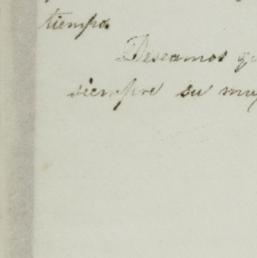 tiempo.
Deseamos q
siempre su muy